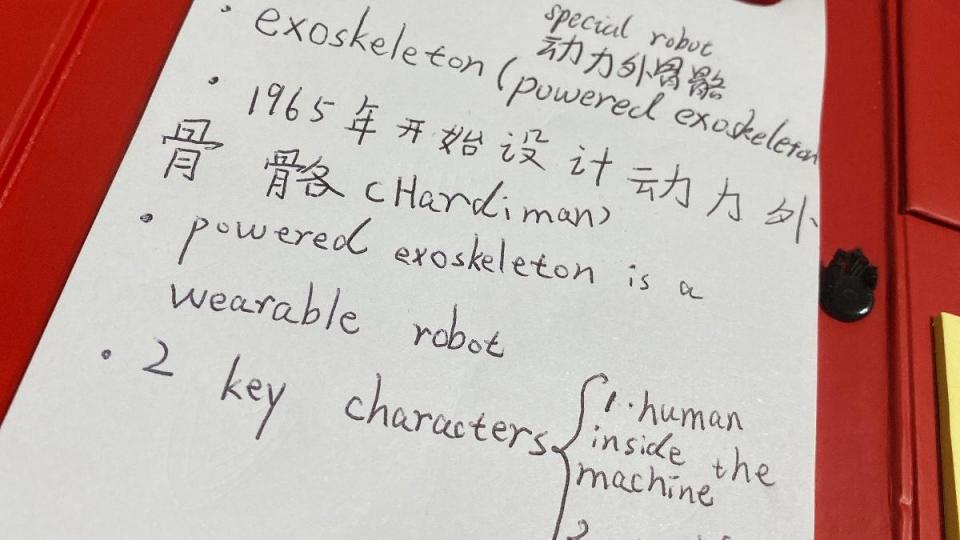 special robot
动力外骨骼
• exoskeleton (powered exoskeleton
• 1965年开始设计动力外
骨骼 (Hardiman)
• powered exoskeleton is a
wearable robot
• 2 key characters { 1. human
inside the
machine
2